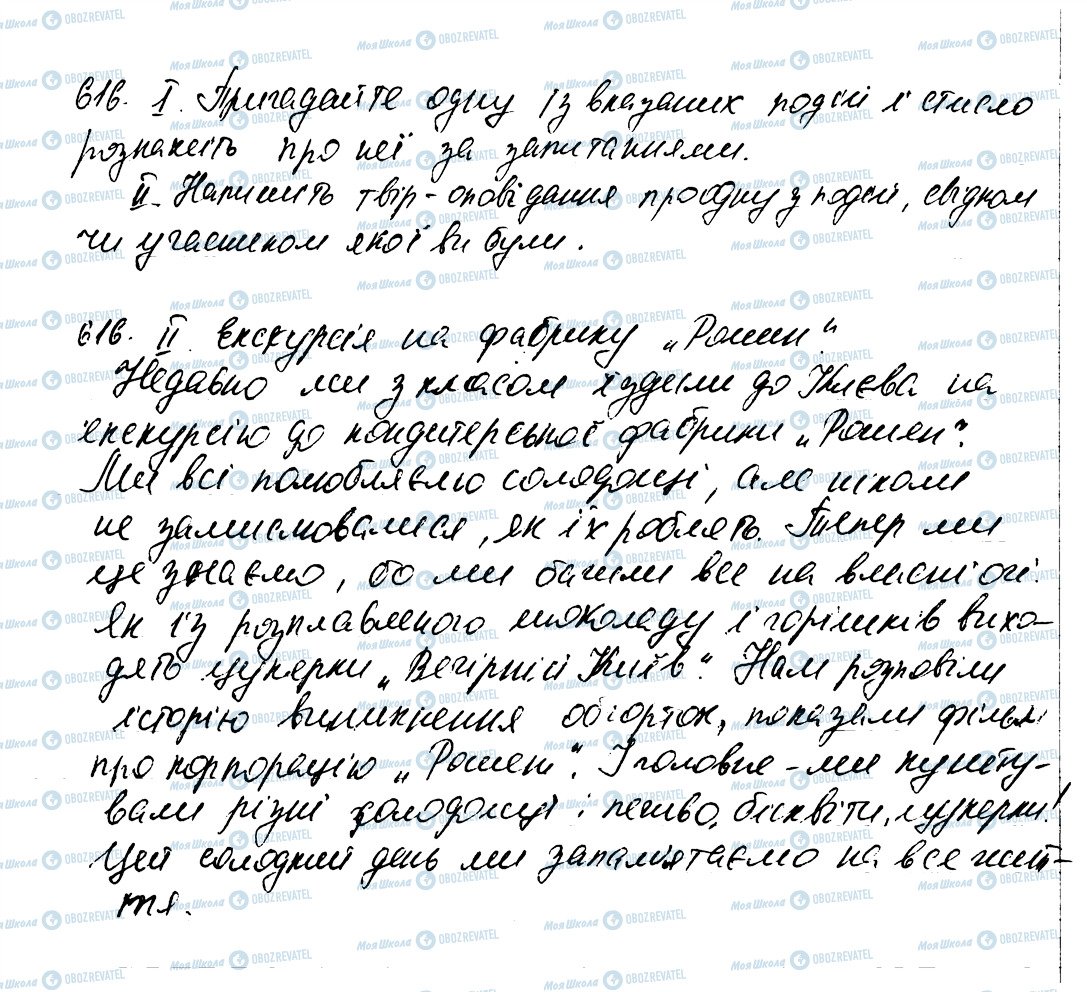 616. I. Пригадайте одну із вказаних подій і стисло
розкажіть про неї за запитаннями.
II. Напишіть твір-оповідання про одну з подій, свідком
чи учасником якої ви були.
616. II Екскурсія на фабрику „Рошен“.
Недавно ми з класом їздили до Києва на
екскурсію до кондитерської фабрики „Рошен“.
Ми всі полюбляємо солодощі, але ніколи
не замислювалися, як їх роблять. Тепер ми
це знаємо, бо ми бачили все на власні очі
як із розплавленого шоколаду і горішків вихо-
дять цукерки „Вечірній Київ“. Нам розповіли
історію виникнення обгорток, показали фільм
про корпорацію „Рошен“. І головне - ми кушту-
вали різні солодощі: печиво, бісквіти, цукерки!
Цей солодкий день ми запам'ятаємо на все жит-
тя.